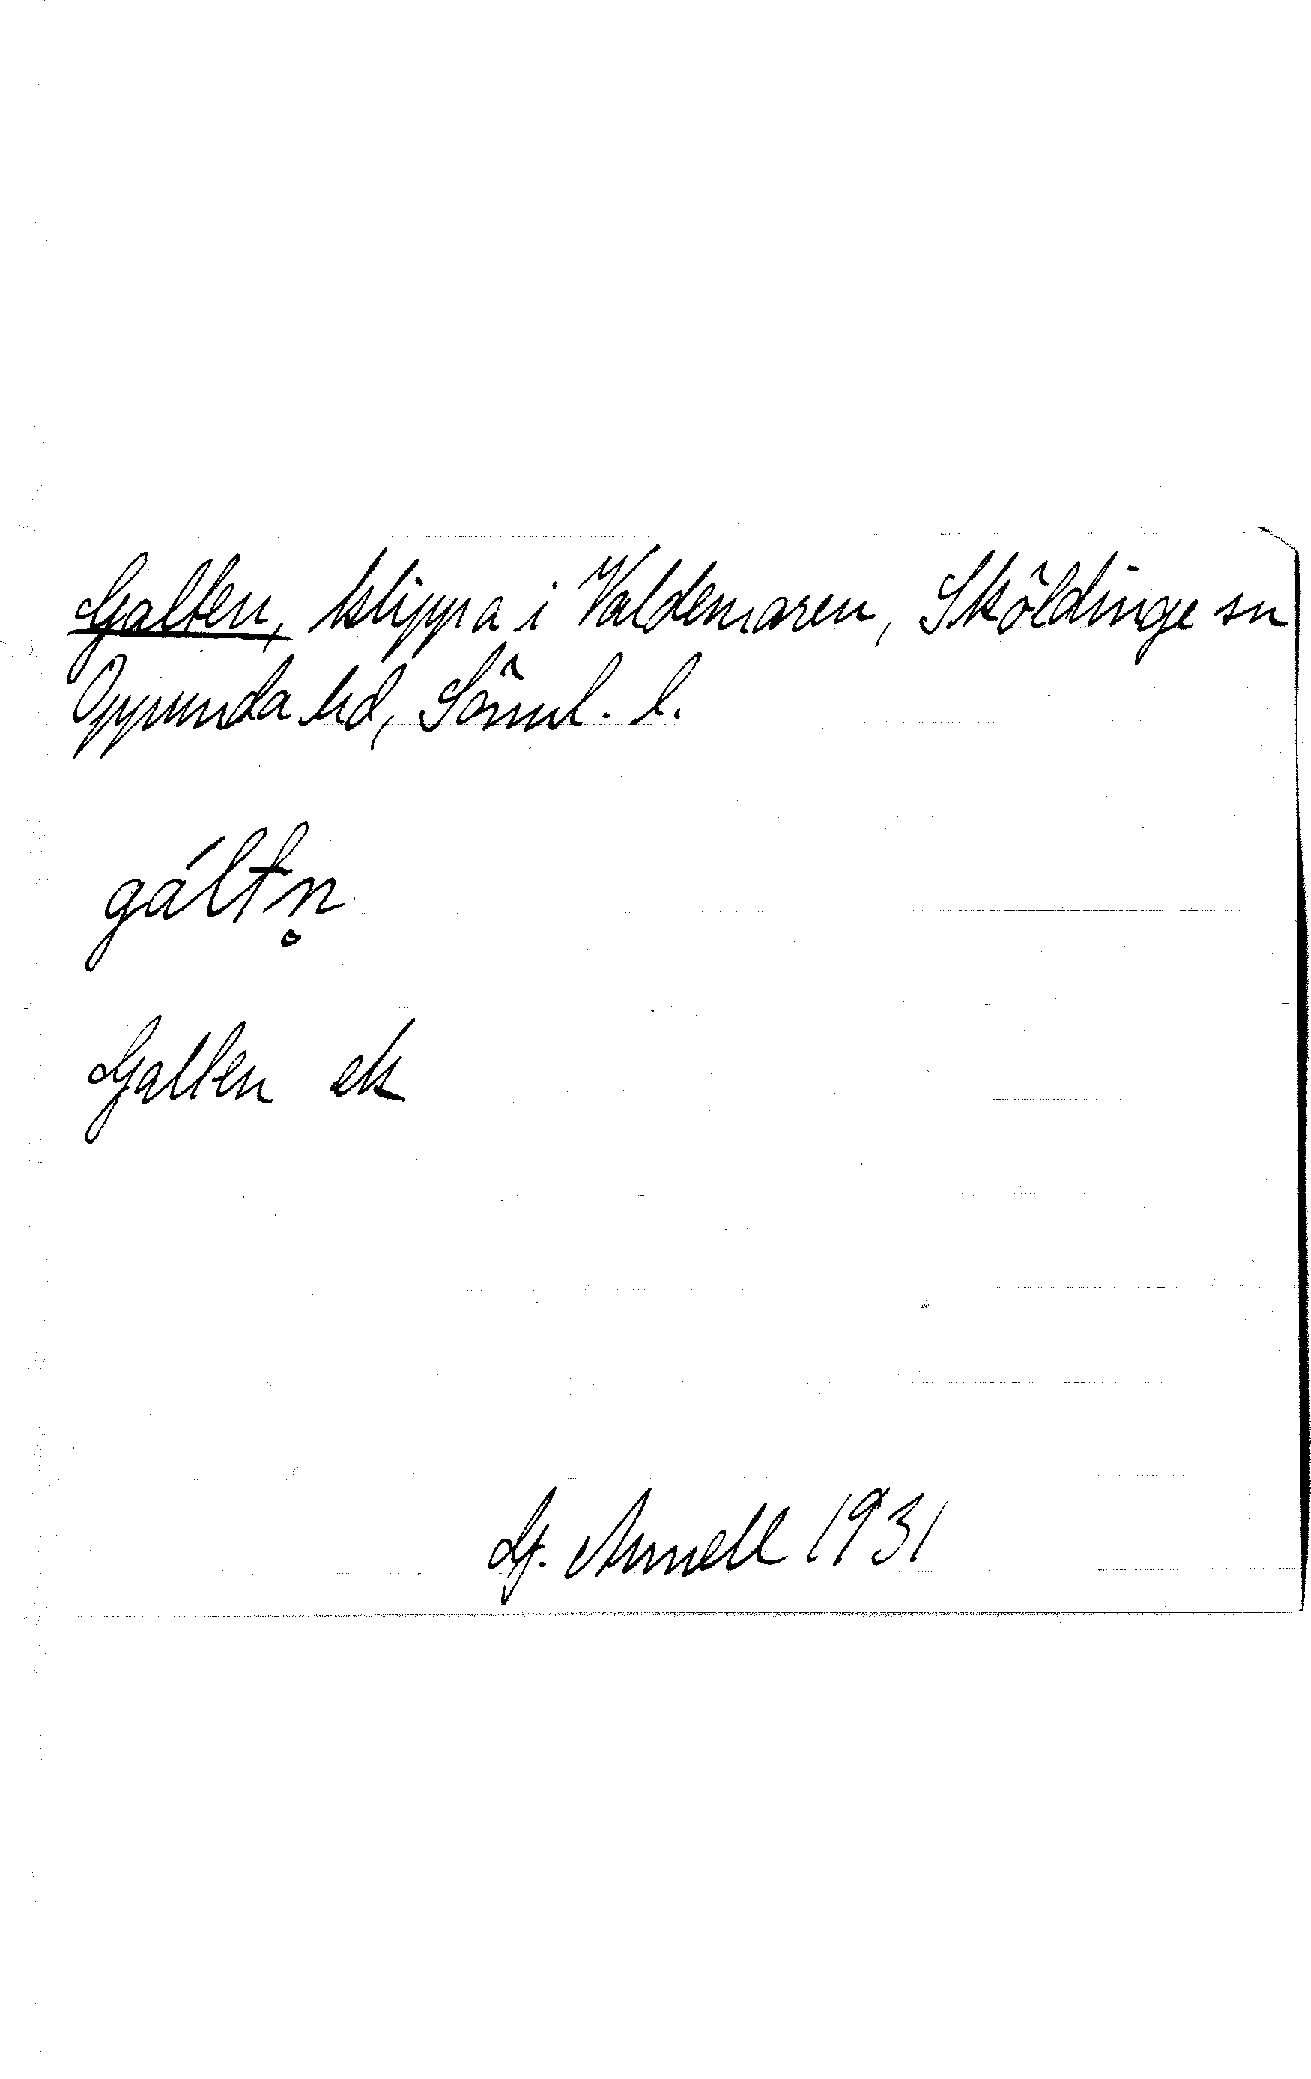 Galten, klippa i Valdemaren, Sköldinge sn
Oppunda hd, Söml. l.
gáltn̥
Galten ek
G. Arnell 1931